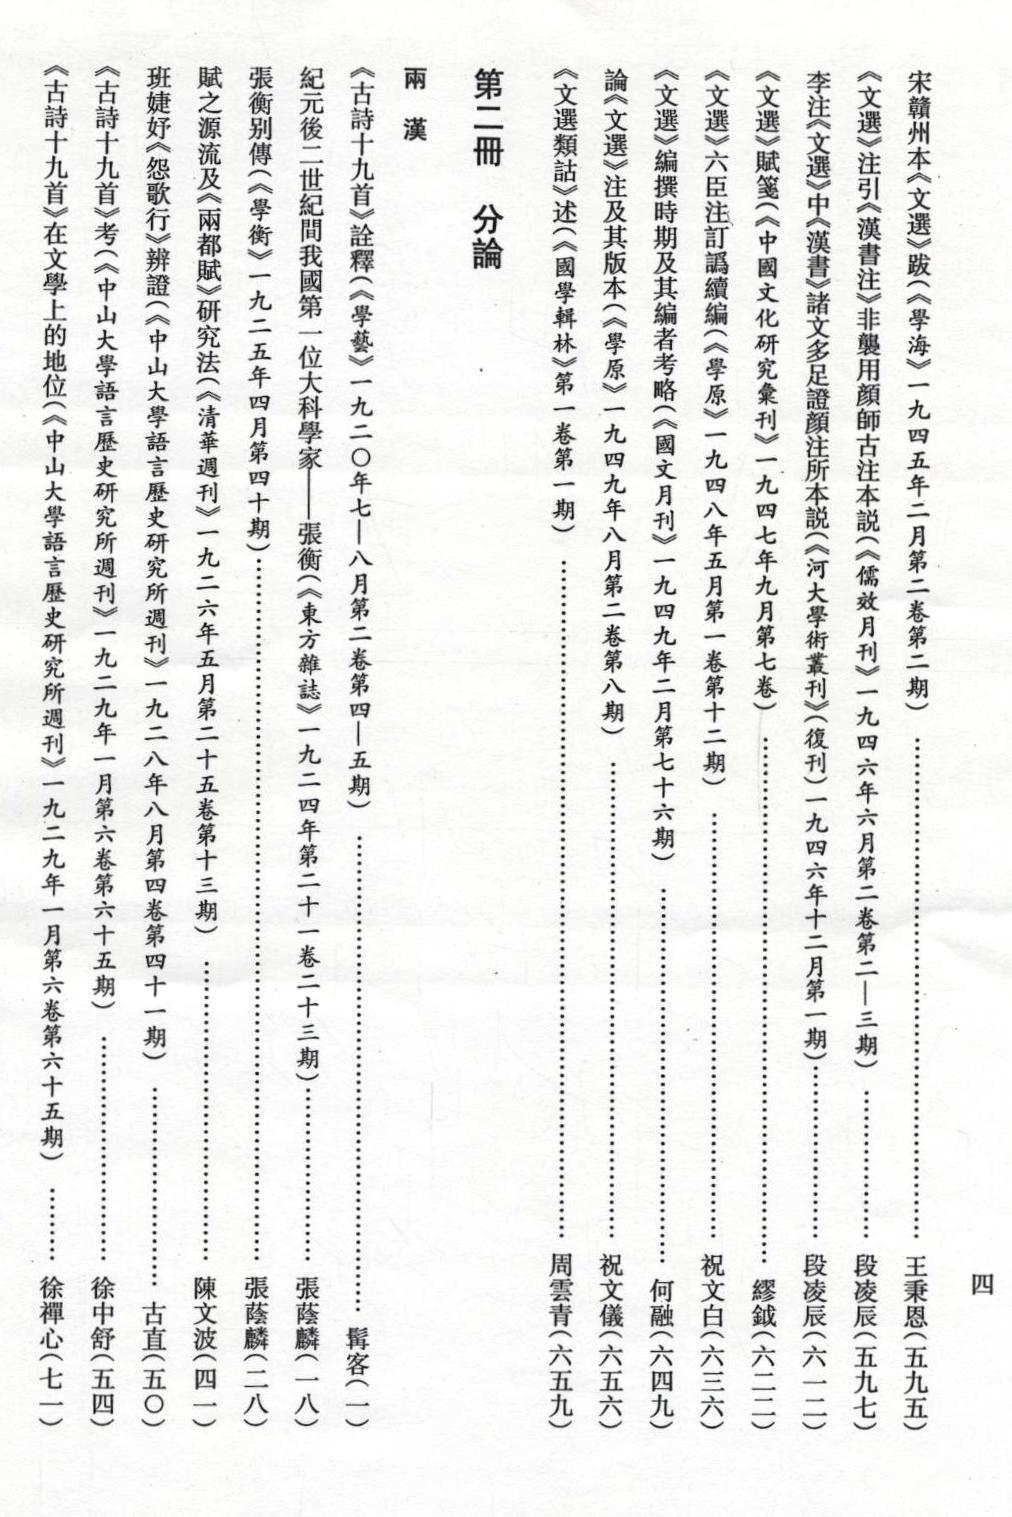 四
宋贛州本《文選》跋(《學海》一九四五年二月第二卷第二期)……王秉恩(五九五)
《文選》注引《漢書注》非襲用顔師古注本説(《儒效月刊》一九四六年六月第二卷第二—三期)……段凌辰(五九七)
李注《文選》中《漢書》諸文多足證顔注所本説(《河大學術叢刊》(復刊)一九四六年十二月第一期)……段凌辰(六一二)
《文選》賦箋(《中國文化研究彙刊》一九四七年九月第七卷)……繆鉞(六二二)
《文選》六臣注訂譌續編(《學原》一九四八年五月第一卷第十二期)……祝文白(六三六)
《文選》編撰時期及其編者考略(《國文月刊》一九四九年二月第七十六期)……何融(六四九)
論《文選》注及其版本(《學原》一九四九年八月第二卷第八期)……祝文儀(六五六)
《文選類詁》述(《國學輯林》第一卷第一期)……周雲青(六五九)
第二冊 分論
兩漢
《古詩十九首》詮釋(《學藝》一九二〇年七—八月第二卷第四—五期)……髯客(一)
紀元後二世紀間我國第一位大科學家——張衡(《東方雜誌》一九二四年第二十一卷二十三期)……張蔭麟(一八)
張衡别傳(《學衡》一九二五年四月第四十期)……張蔭麟(二八)
賦之源流及《兩都賦》研究法(《清華週刊》一九二六年五月第二十五卷第十三期)……陳文波(四一)
班婕妤《怨歌行》辨證(《中山大學語言歷史研究所週刊》一九二八年八月第四卷第四十一期)……古直(五〇)
《古詩十九首》考(《中山大學語言歷史研究所週刊》一九二九年一月第六卷第六十五期)……徐中舒(五四)
《古詩十九首》在文學上的地位(《中山大學語言歷史研究所週刊》一九二九年一月第六卷第六十五期)……徐禪心(七一)